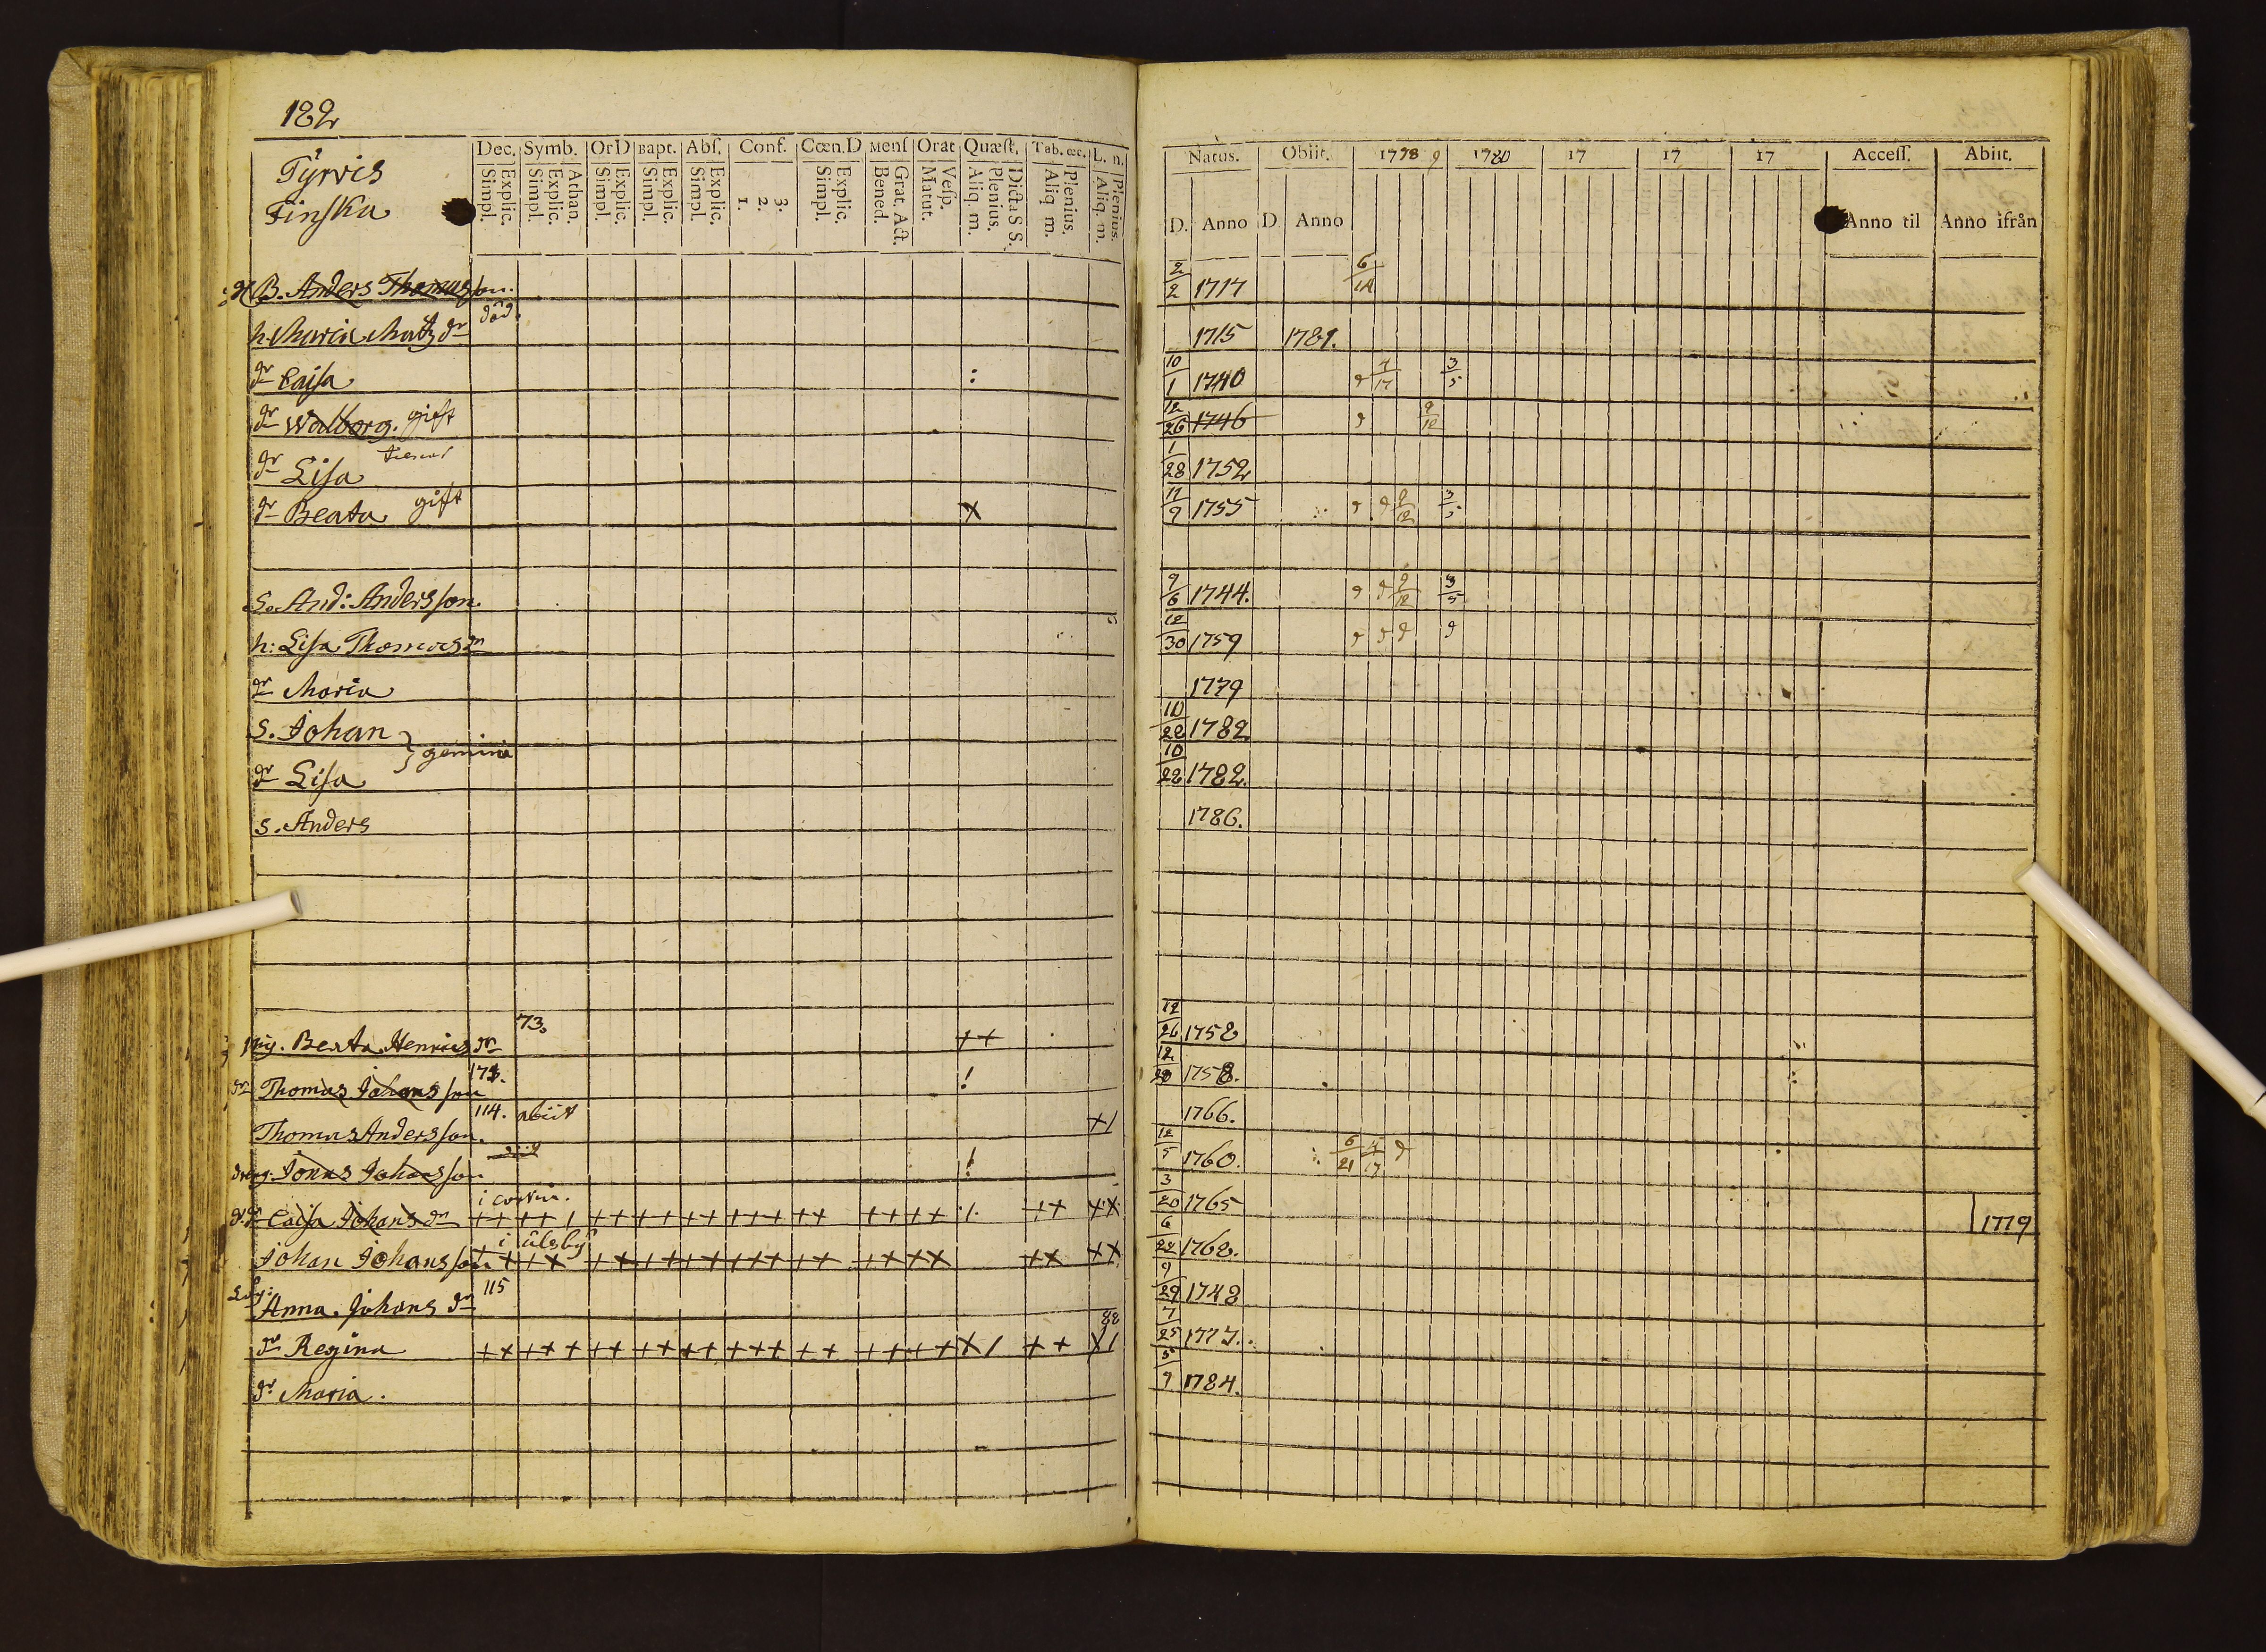 182
Dec. Symb. OrD Bapt. Abſ. Conf. Cœn.D Menſ Orat Quæſt. Tab. œc. L. n.
Explic. Simpl. Athan. Explic. Simpl. Explic. Simpl. Explic. Simpl. Explic. Simpl. 3. 2. 1. Explic. Simpl. Grat. Act. Bened. Veſp. Matut. Dicta S S. Plenius. Aliq. m. Plenius. Aliq m. Plenius. Aliq. m.
Tyrvis
Finska
B. Anders Thomasson.
h. Maria Matz dr död.
dr Caisa :
dr Walborg. gift
dr Lisa
dr Beata gift X
S. And: Andersson
h: Lisa Thomas dr
dr Maria
S. Johan } gemini
dr Lisa
S. Anders
pig. Beata Henrics dr 73. ++
Thomas Johansson 173. !
Thomas Andersson. 114. abiit +/
dreng. Jonas Johansson !
dr Caisa Johans dr ++ ++ / ++ ++ ++ +++ ++ ++ ++ ./. ++ ++
Johan Johansson i ++ ++ ++ ++ ++ +++ ++ ++ ++ ++ ++
Anna Johans dr 115
dr Regina ++ +++ ++ ++ ++ +++ ++ ++ ++ X/ ++ X/ 88
dr Maria.
Natus. Obiit. 1778 9 1780 17 17 17 Acceſſ. Abiit.
D. Anno D Anno Anno til Anno ifrån
2/2 1717 6/14
1715 1781.
10/1 1740 4/17 3/5
12/26 1746 9/12
1/28 1752
11/9 1755 9/12 3/5
9/6 1744. 9/12 3/5
12/30 1759
1779
10/22 1782
10/22 1782.
1786.
12/26 1758
12/28 1758.
1766.
12/5 1760. 6/21 4/17
3/20 1765 1779
6/22 1762.
9/29 1748
7/25 1777.
5/9 1784.